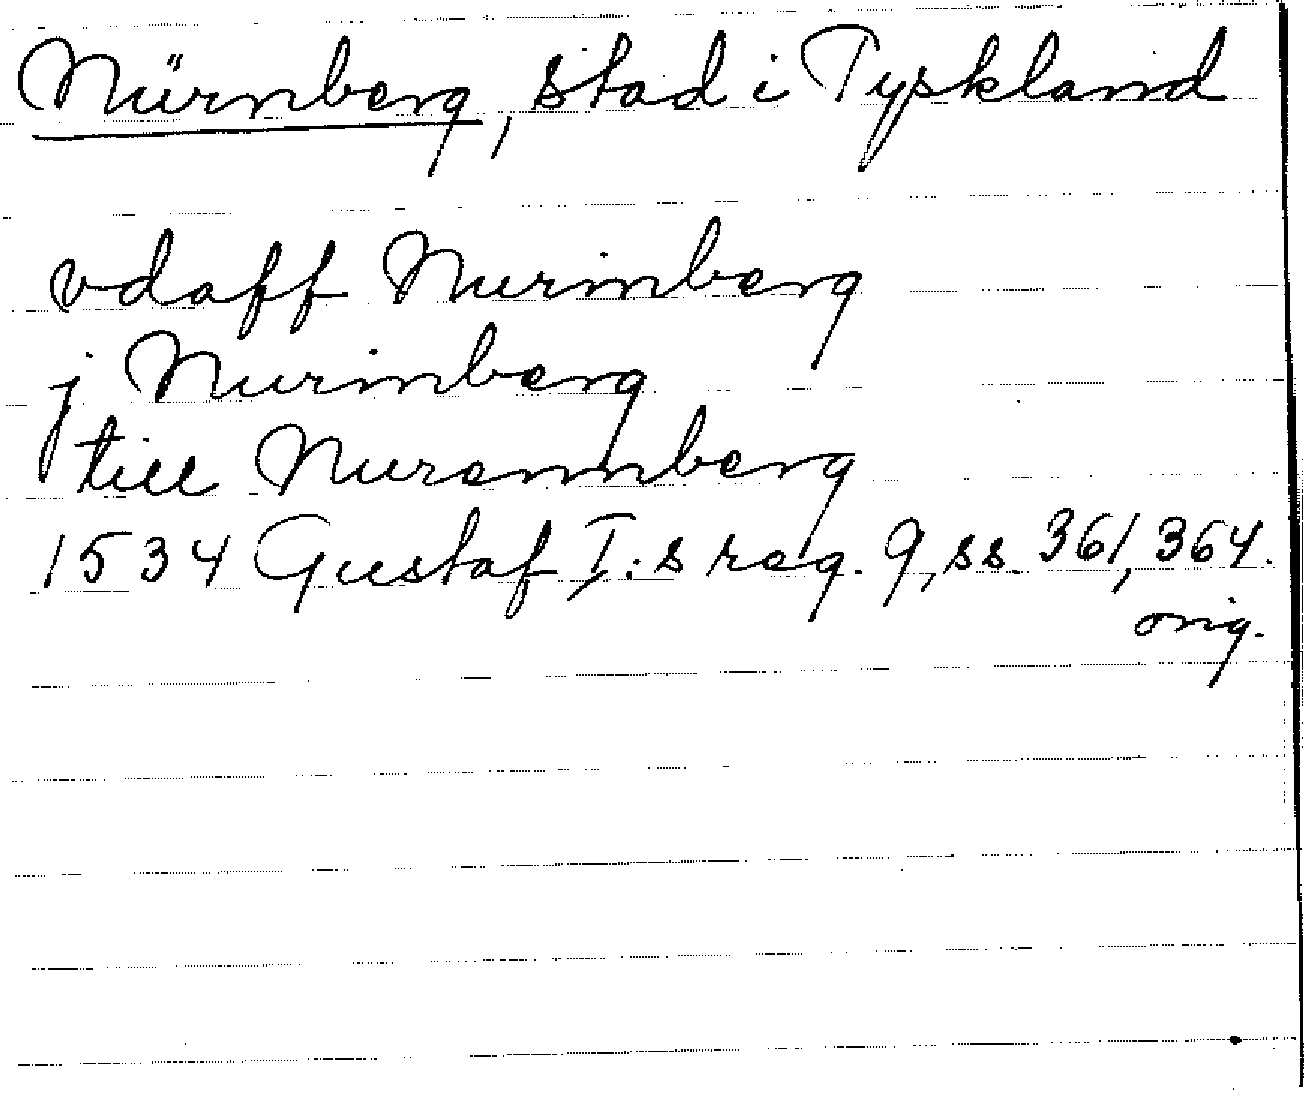 Nürnberg, stad i Tyskland
vdaff Nurinberg
j Nurinberg
till Nurennberg
1534 Gustaf I:s reg. 9, ss. 361, 364.
orig.